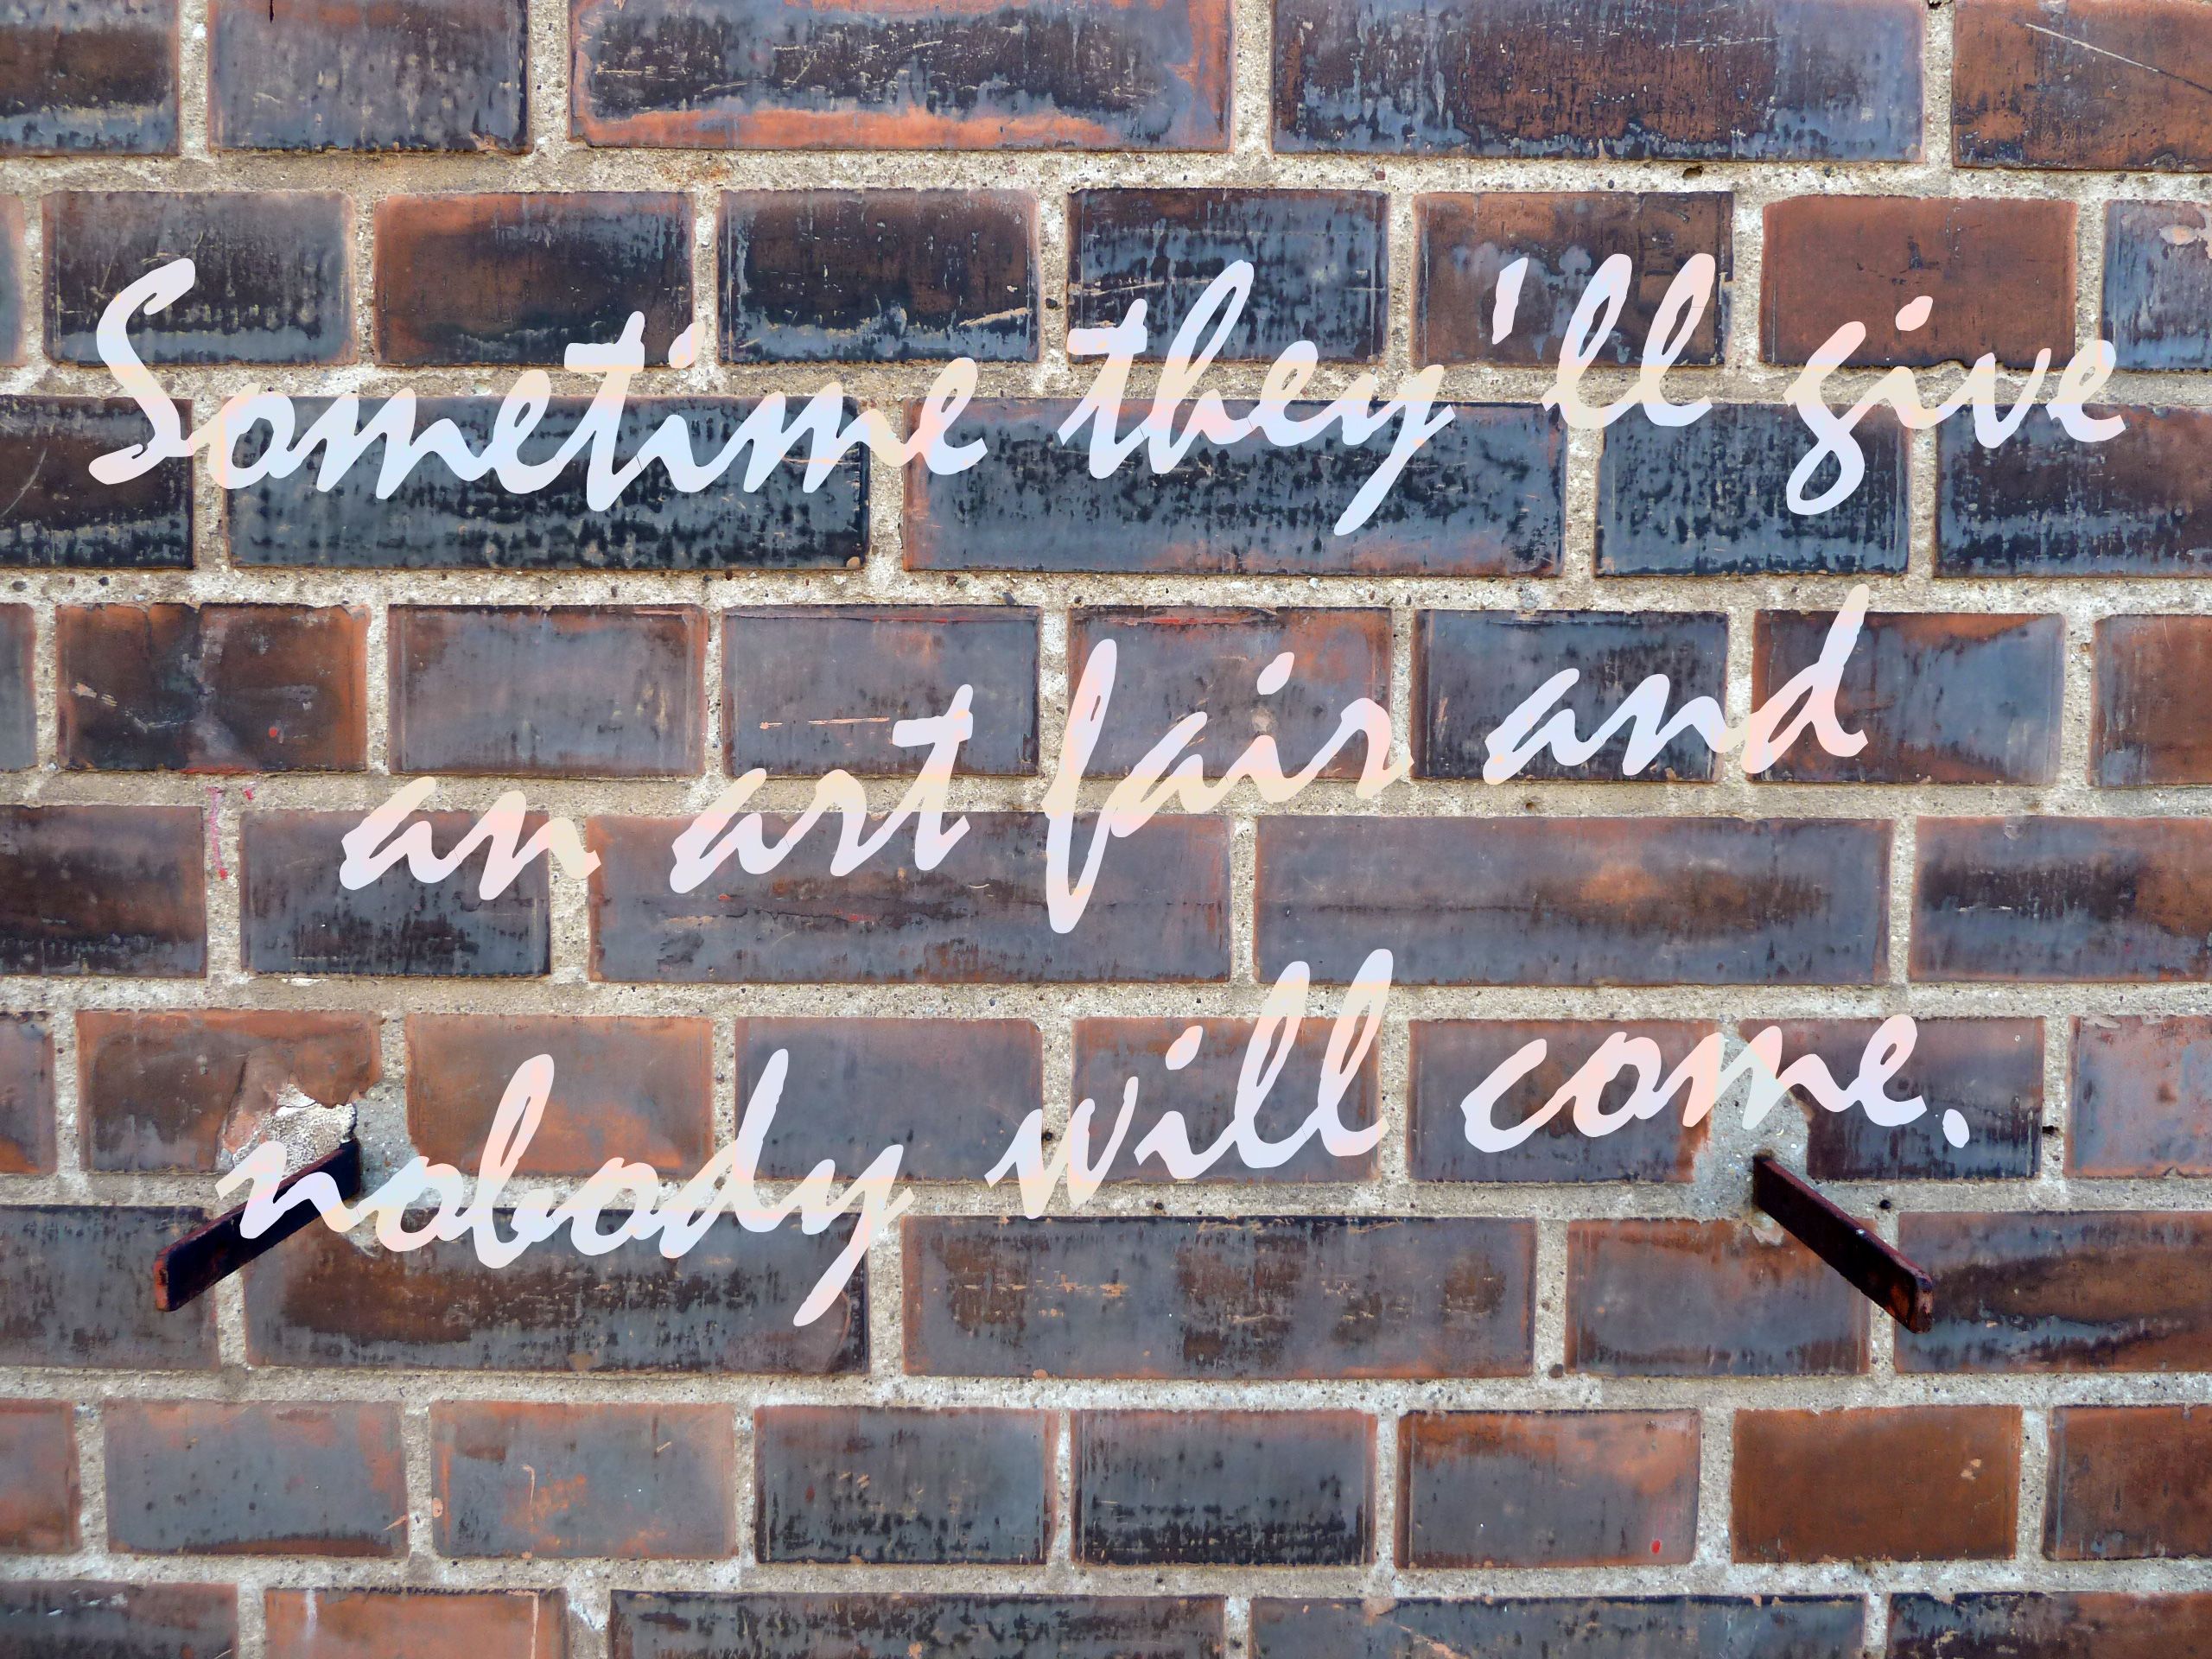 Sometime they'll give
an art fair and
nobody will come.